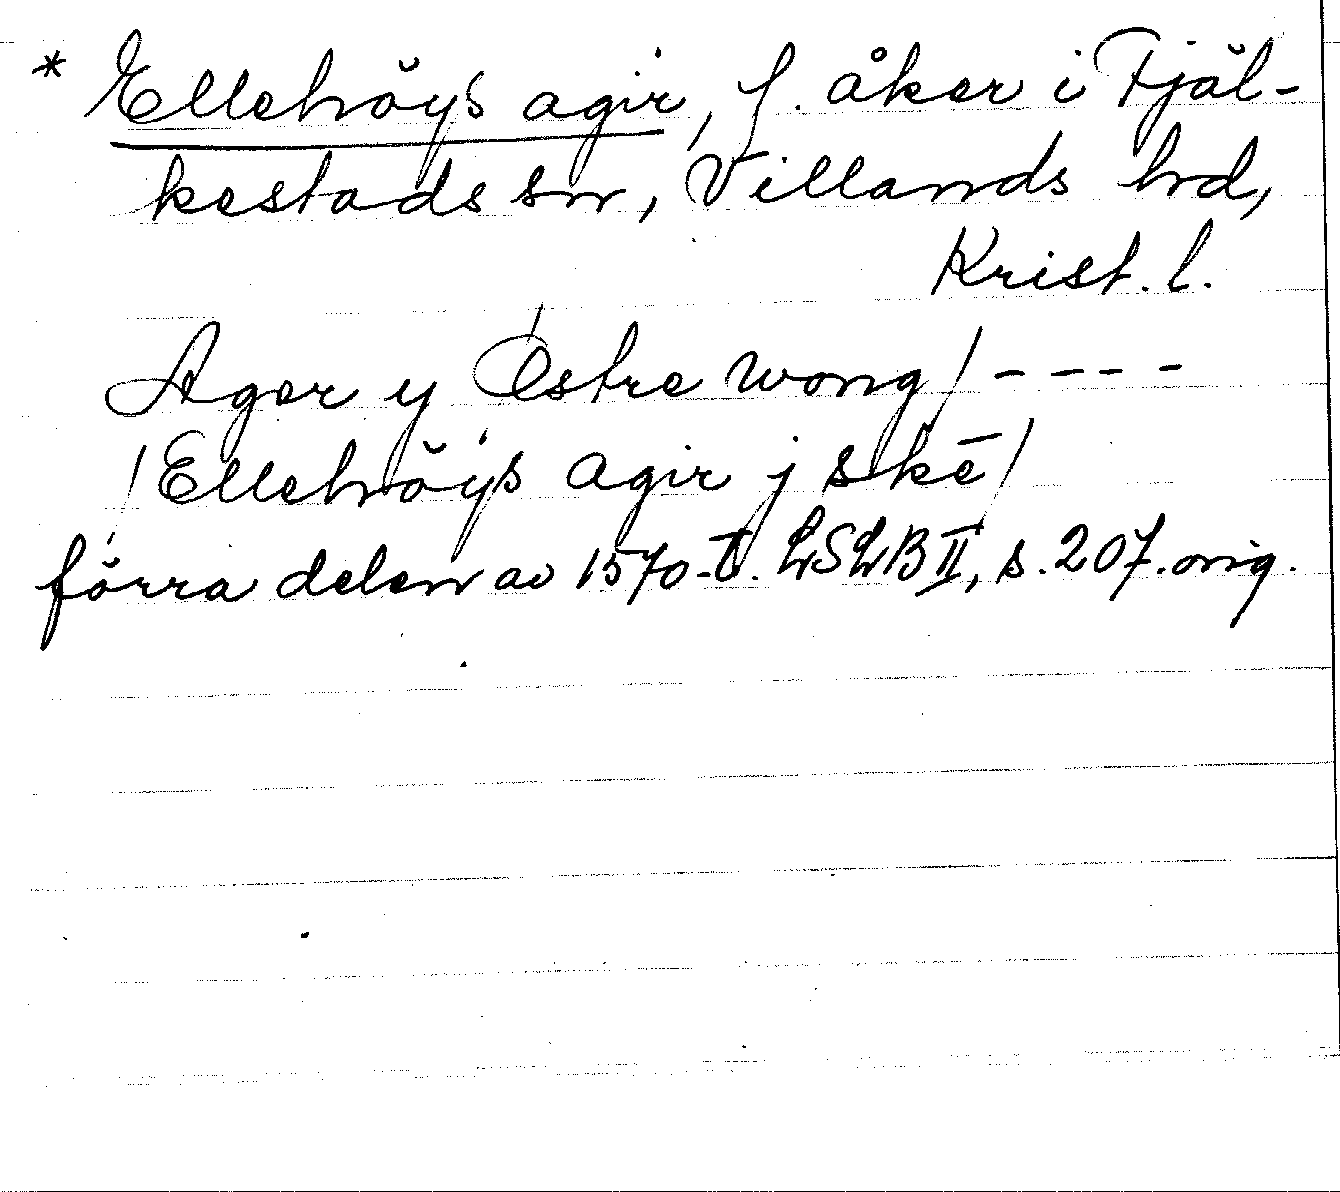 * Ellehöys agir, f. åker i Fjäl-
kestads sn, Villands hd,
Krist. l.
Ager y Østre wong/ - - - -
/Ellehöys agir j skē/
förra delen av 1570-t. LSLB II, s. 207. orig.